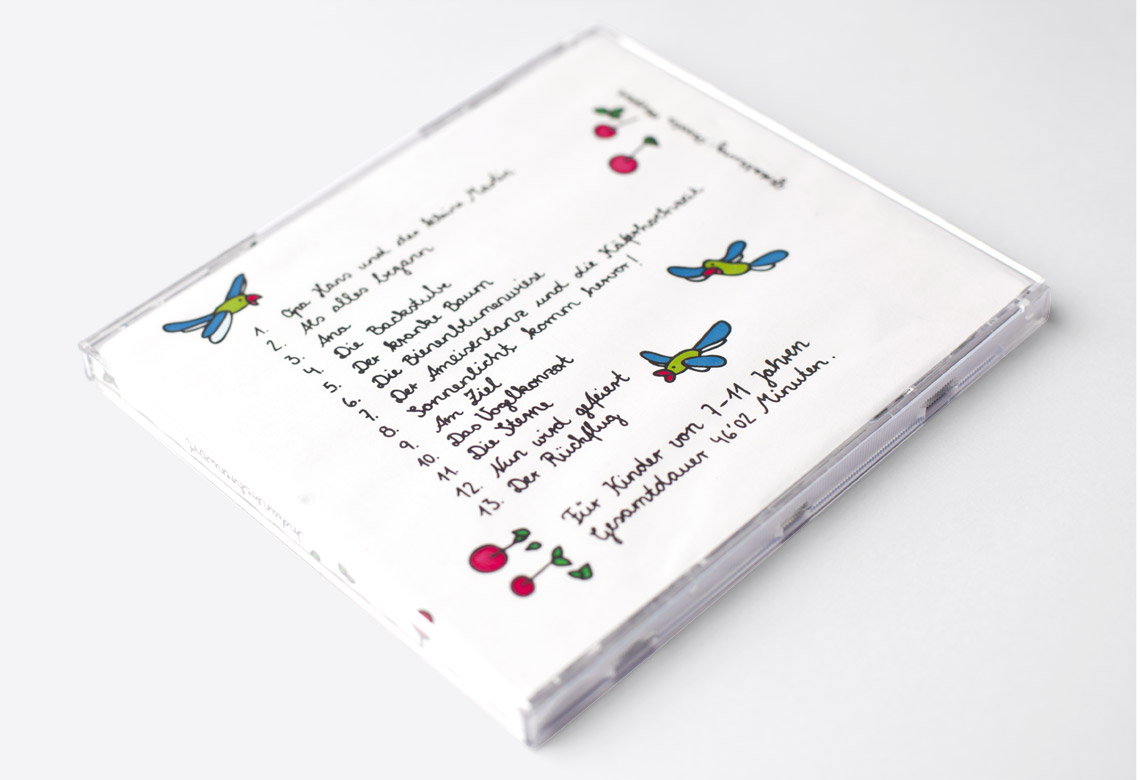 1. Opa Hans und der kleine Martin
2. Als alles begann
3. Ana
4. Die Backstube
5. Der kranke Baum
6. Die Bienenblumenwiese
7. Der Ameisentanz und die Käferhochzeit
8. Sonnenlicht komm hervor!
9. Am Ziel
10. Das Vogelkonzert
11. Die Sterne
12. Nun wird gefeiert
13. Der Rückflug
Für Kinder von 7-11 Jahren
Gesamtdauer 46'02 Minuten.